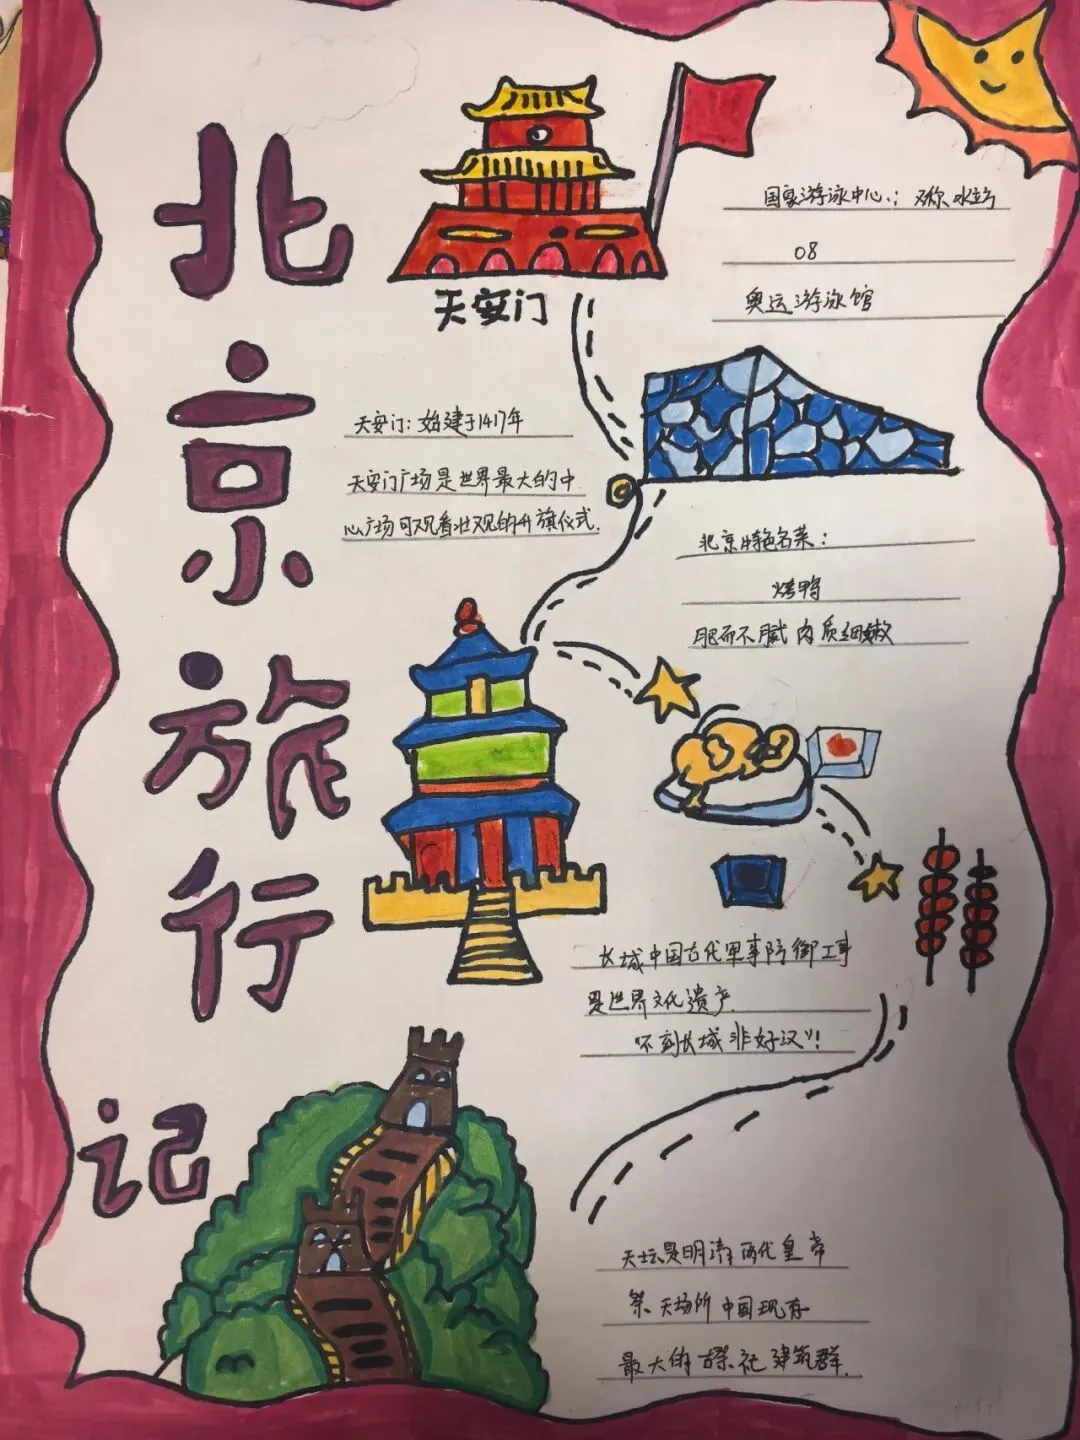 北京旅行记
天安门
国家游泳中心：又称水立方
08
奥运游泳馆
天安门：始建于1417年
天安门广场是世界最大的中
心广场可观看壮观的升旗仪式.
北京特色名菜：
烤鸭
肥而不腻 肉质细嫩
长城中国古代军事防御工事
是世界文化遗产.
“不到长城 非好汉”!
天坛是明清两代皇帝
祭天场所 中国现存
最大的古祭祀建筑群.